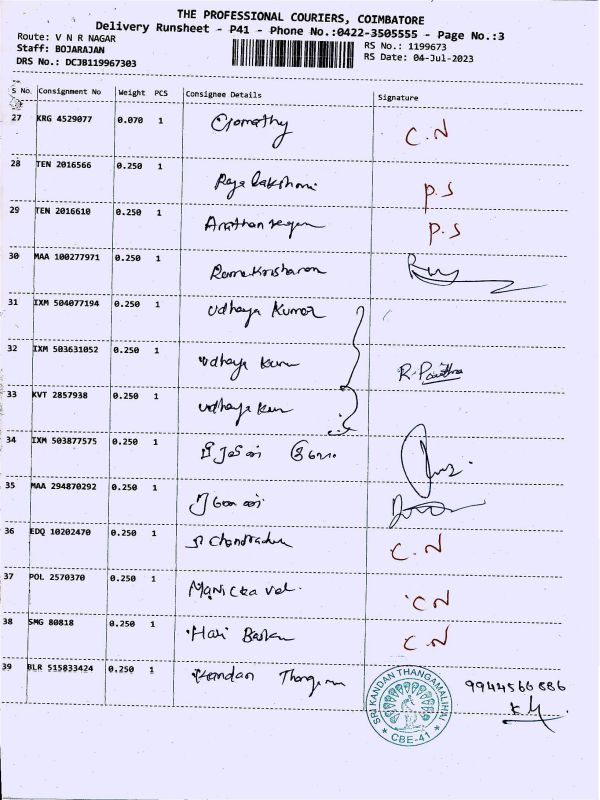 THE PROFESSIONAL COURIERS, COIMBATORE
Delivery Runsheet - P41 - Phone No.:0422-3505555 - Page No.:3
Route: V N R NAGAR
RS No.: 1199673
Staff: BOJARAJAN
RS Date: 04-Jul-2023
DRS No.: DCJB119967303
S No. Consignment No Weight PCS Consignee Details Signature
27 KRG 4529077 0.070 1 Gomathy C.N
28 TEN 2016566 0.250 1 P.S
29 TEN 2016610 0.250 1 P.S
30 MAA 100277971 0.250 1 Ramakrishanan
31 IXM 504077194 0.250 1 Udhaya Kumar
32 IXM 503631052 0.250 1 Udhaya R.
33 KVT 2857938 0.250 1 Udhaya
34 IXM 503877575 0.250 1
35 MAA 294870292 0.250 1
36 EDQ 10202470 0.250 1 C.N
37 POL 2570370 0.250 1 Manicka vel. CN
38 SMG 80818 0.250 1 Hari C.N
39 BLR 515833424 0.250 1 Kandan
SRI KANDAN THANGAMALIHAI
CBE-41
9944566886